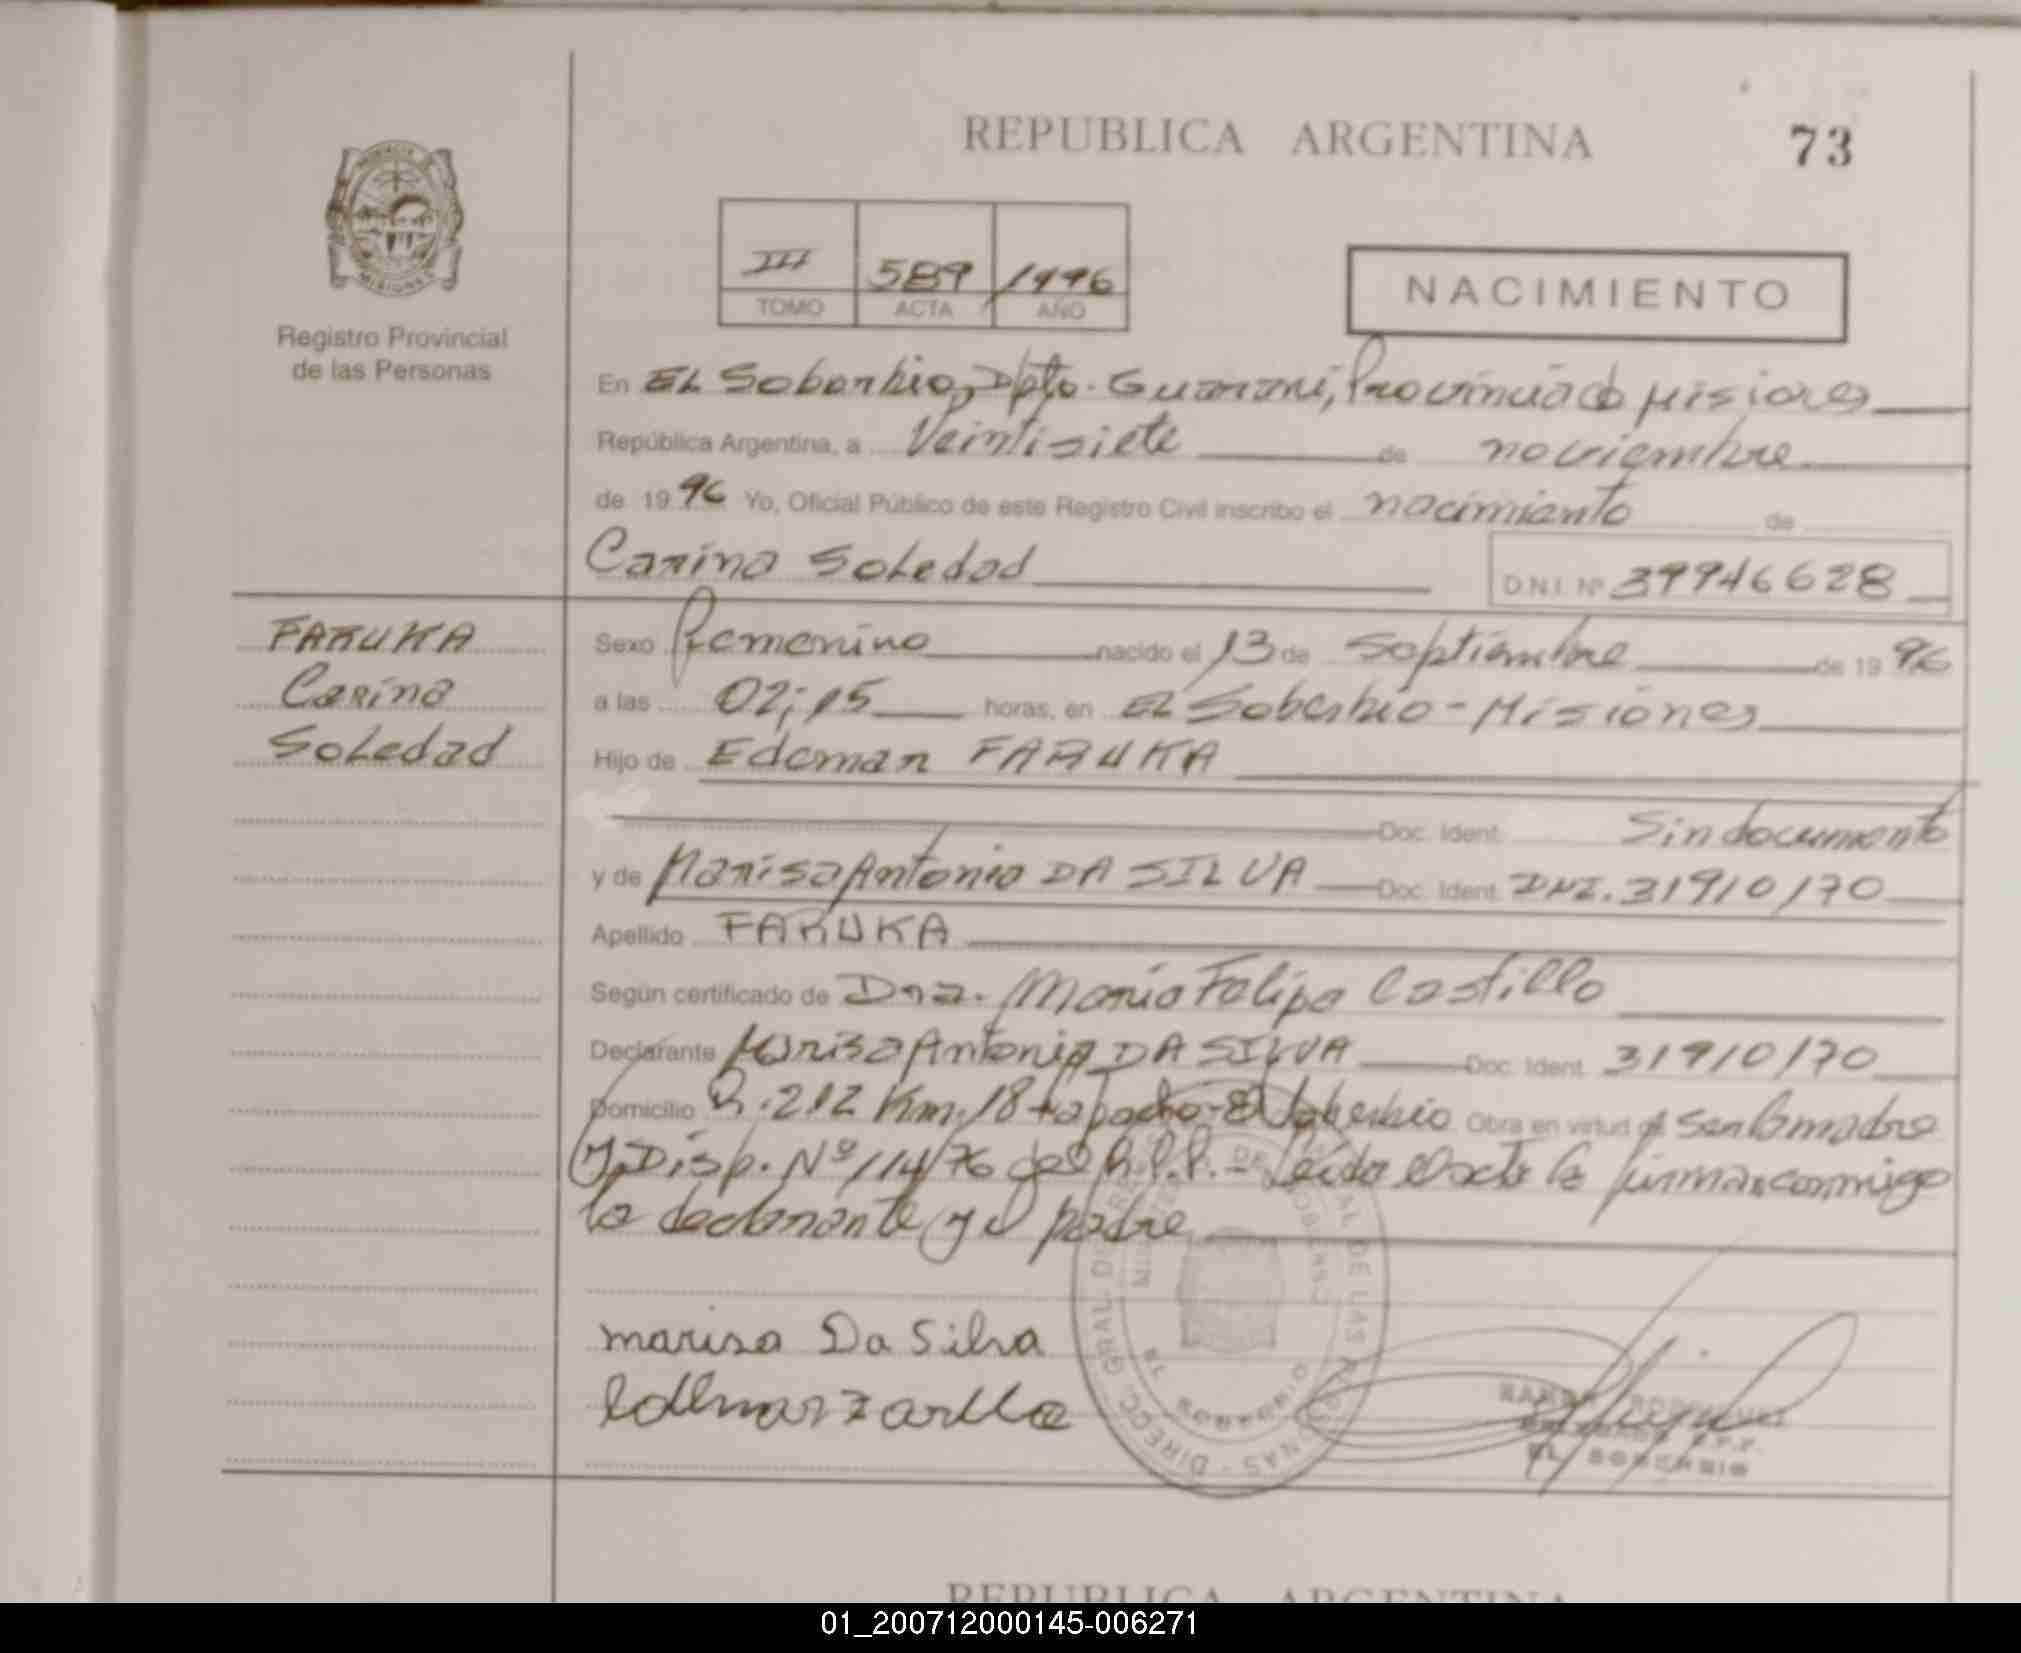 REPUBLICA ARGENTINA
73
III 589 1996
TOMO ACTA AÑO
NACIMIENTO
Registro Provincial
de las Personas
En EL Soberbio, Dpto. Guarani, Provincia de Misiones
República Argentina, a Veintisiete de noviembre
de 1996 Yo, Oficial Público de este Registro Civil inscribo el nacimiento de
Carina Soledad
D.N.I. Nº 39946628
FARUKA
Carina
Soledad
Sexo Femenino nacido el 13 de Septiembre de 1996
a las 02;15 horas, en EL Soberbio - Misiones
Hijo de Edemar FARUKA
Doc. Ident. Sin documento
y de Marisa Antonia DA SILVA Doc. Ident. DNI. 31910170
Apellido FARUKA
Según certificado de Dra. Maria Felipa Castillo
Declarante Marisa Antonia DA SILVA Doc. Ident. 31910170
Domicilio R. 212 Km. 18 - El Soberbio Obra en virtud de ser la madre
y Disp. Nº 114/76 del R.P.P. - Leida el acta la firman conmigo
la declarante y el padre
marisa Da Silva
DIRECC. GRAL. DE LAS
EL SOBERBIO
EL SOBERBIO
REPUBLICA ARGENTINA
01_200712000145-006271